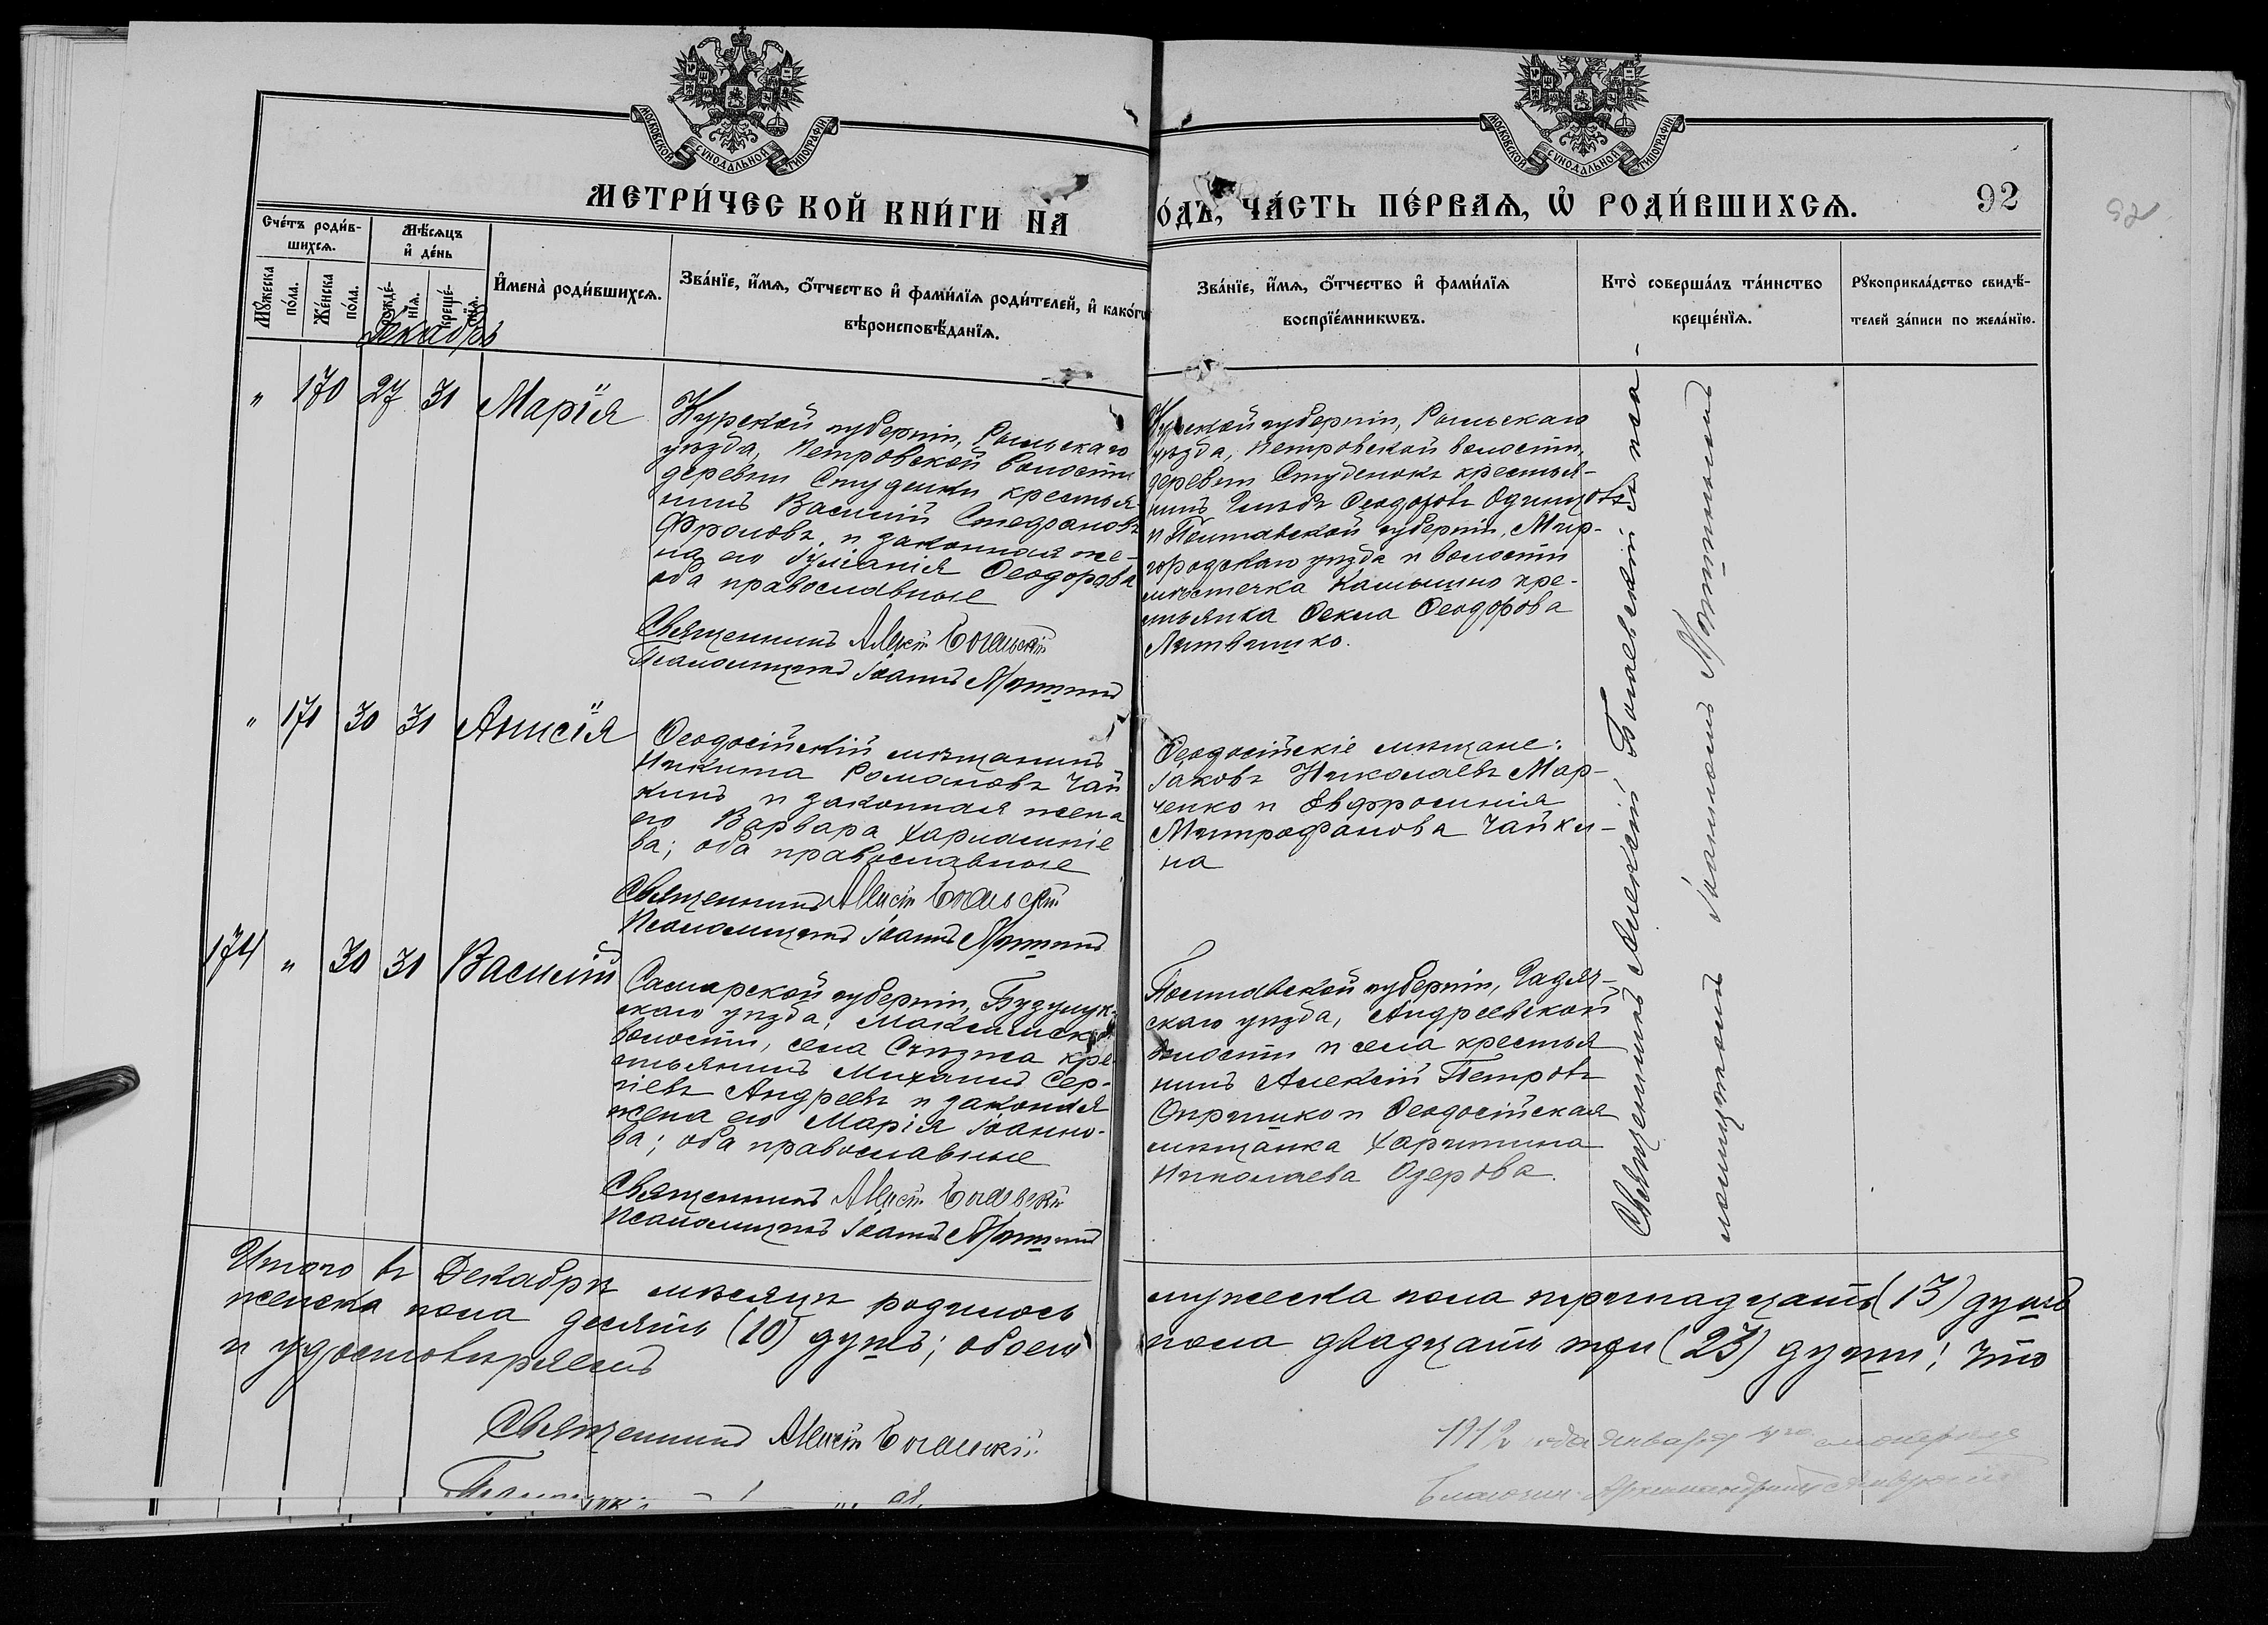 МОСКОВСКОЙ СѴНОДАЛЬНОЙ ТИПОГРАФІИ
МОСКОВСКОЙ СѴНОДАЛЬНОЙ ТИПОГРАФІИ
МЕТРИ́ЧЕСКОЙ КНИ́ГИ НА
О́ДЪ, ЧА́СТЬ ПЕ́РВАѦ, Ѡ҆ РОДИ́ВШИХСѦ.
92
92
Сче́тъ роди́в-
шихсѧ.
Мѹ́жеска по́ла.
Же́нска по́ла.
Мѣ́сѧцъ
и҆ де́нь
рожде́-нїѧ.
креще́-нїѧ.
И҆мена̀ роди́вшихсѧ.
Зва́нїе, и҆́мѧ, ѻ҆́тчество и҆ фами́лїѧ роди́телей, и҆ како́гѡ
вѣроисповѣ́данїѧ.
Зва́нїе, и҆́мѧ, ѻ҆́тчество и҆ фами́лїѧ
воспрїе́мникѡвъ.
Кто̀ соверша́лъ та́инство
креще́нїѧ.
Рѹкоприкла́дство свидѣ́-
телей за́писи по жела́нїю.
Декабрь
" 170 27 31 Марія
Курской губерніи, Рыльскаго
уѣзда, Петровской волости
деревни Студенки крестья-
нинъ Василій Стефановъ
Фроловъ, и законная же-
на его Іуліанія Ѳеодорова
оба православные
Священникъ Алексій Богаевскій
Псаломщикъ Іоаннъ
Курской губерніи, Рыльскаго
уѣзда, Петровской волости,
деревни Студенокъ крестья-
нинъ Глѣбъ Ѳеодоровъ Одинцовъ
и Полтавской губерніи, Мир-
городскаго уѣзда и волости
мѣстечка Камышно кре-
стьянка Ѳекла Ѳеодорова
Литвишко.
" 171 30 31 Анисія
Ѳеодосійскій мѣщанинъ
Никита Романовъ Чай
кинъ и законная жена
его Варвара Харлампіе
ва; оба православные
Священникъ Алексій Богаевскій
Псаломщикъ Іоаннъ
Ѳеодосійскіе мѣщане:
Іаковъ Николаевъ Мар-
ченко и Евфросинія
Митрофанова Чайки-
на
174 " 30 31 Василій
Самарской губерніи, Бузулук-
скаго уѣзда, Максимской
волости, села Съѣзжа кре-
стьянинъ Михаилъ Сер-
гіевъ Андреевъ и законная
жена его Марія Іоанно-
ва; оба православные
Священникъ Алексій Богаевскій
Псаломщикъ Іоаннъ
Полтавской губерніи, Гадяч-
скаго уѣзда, Андреевской
волости и села крестья
нинъ Алексій Петровъ
Опришко и Ѳеодосійская
мѣщанка Харитина
Николаева Озерова.
Священникъ Алексій Богаевскій съ пса-
ломщикомъ Іоанномъ
Итого въ Декабрѣ мѣсяцѣ родилось
мужеска пола тринадцать (13) душъ
женска пола десять (10) душъ; обоего
пола двадцать три (23) души; что
и удостовѣряемъ
Священникъ Алексій Богаевскій
1912 года января